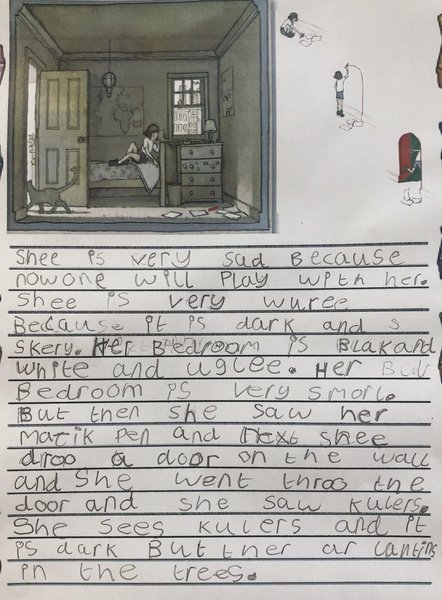 Shee is very sad Because
nowone will Play with her.
Shee is very wuree
Because it is dark and s
skery. Her Bedroom is Blak and
white and uglee. Her Bedr
Bedroom is very smorl.
But then she saw her
matik Pen and next shee
droo a door on the wall
and She went throo the
door and she saw kulers.
She sees kulers and it
is dark But ther ar lantins
in the trees.